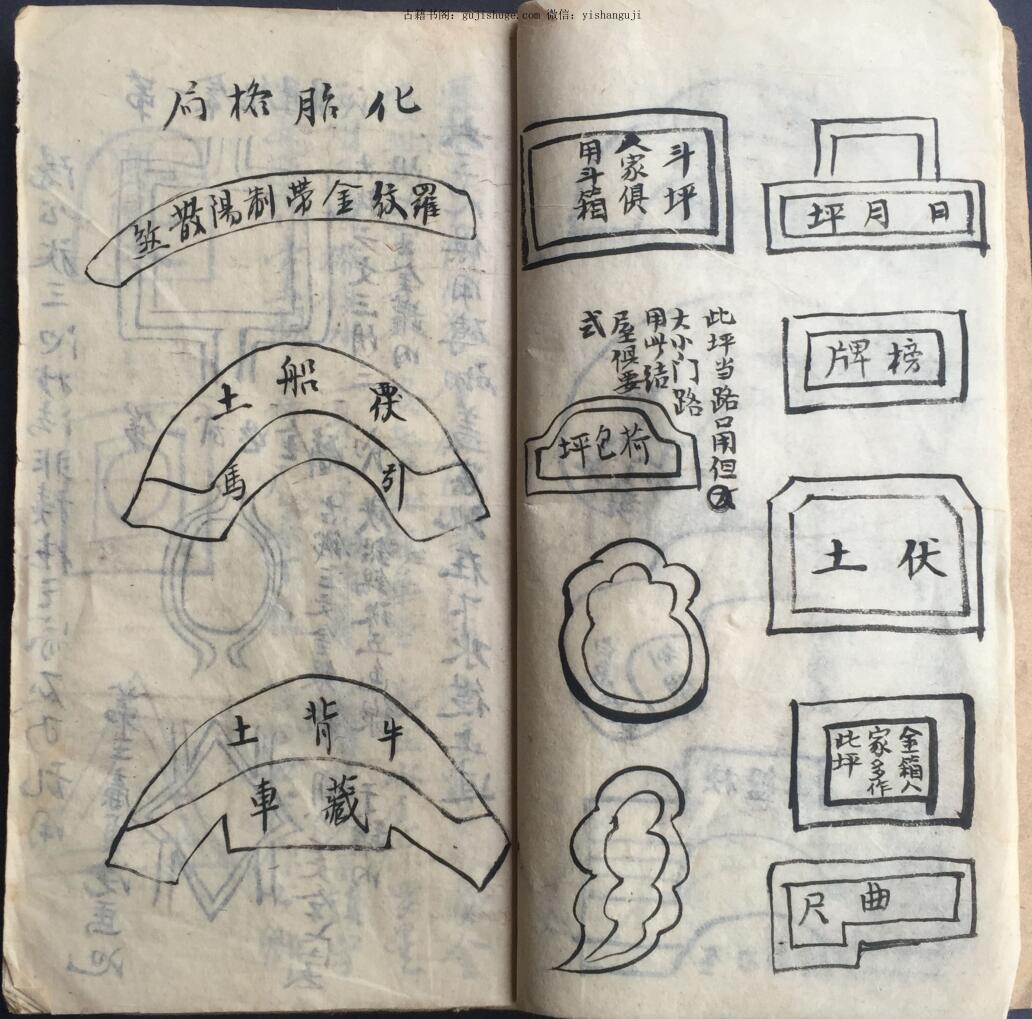 古籍书阁：gujishuge.com 微信：yishanguji
日月坪
牌榜
伏土
金箱人
家多作
此坪
曲尺
斗坪
人家俱
用斗箱
此坪当路口用但
大小门路
用此结
屋俱要
式
荷包坪
化胎格局
羅紋金帶制陽散煞
覆船土
引馬
牛背土
藏車